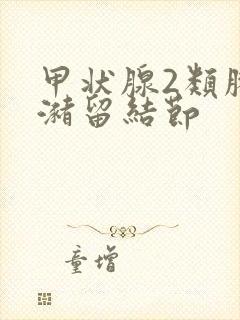 甲状腺2類
潴留結節
童增